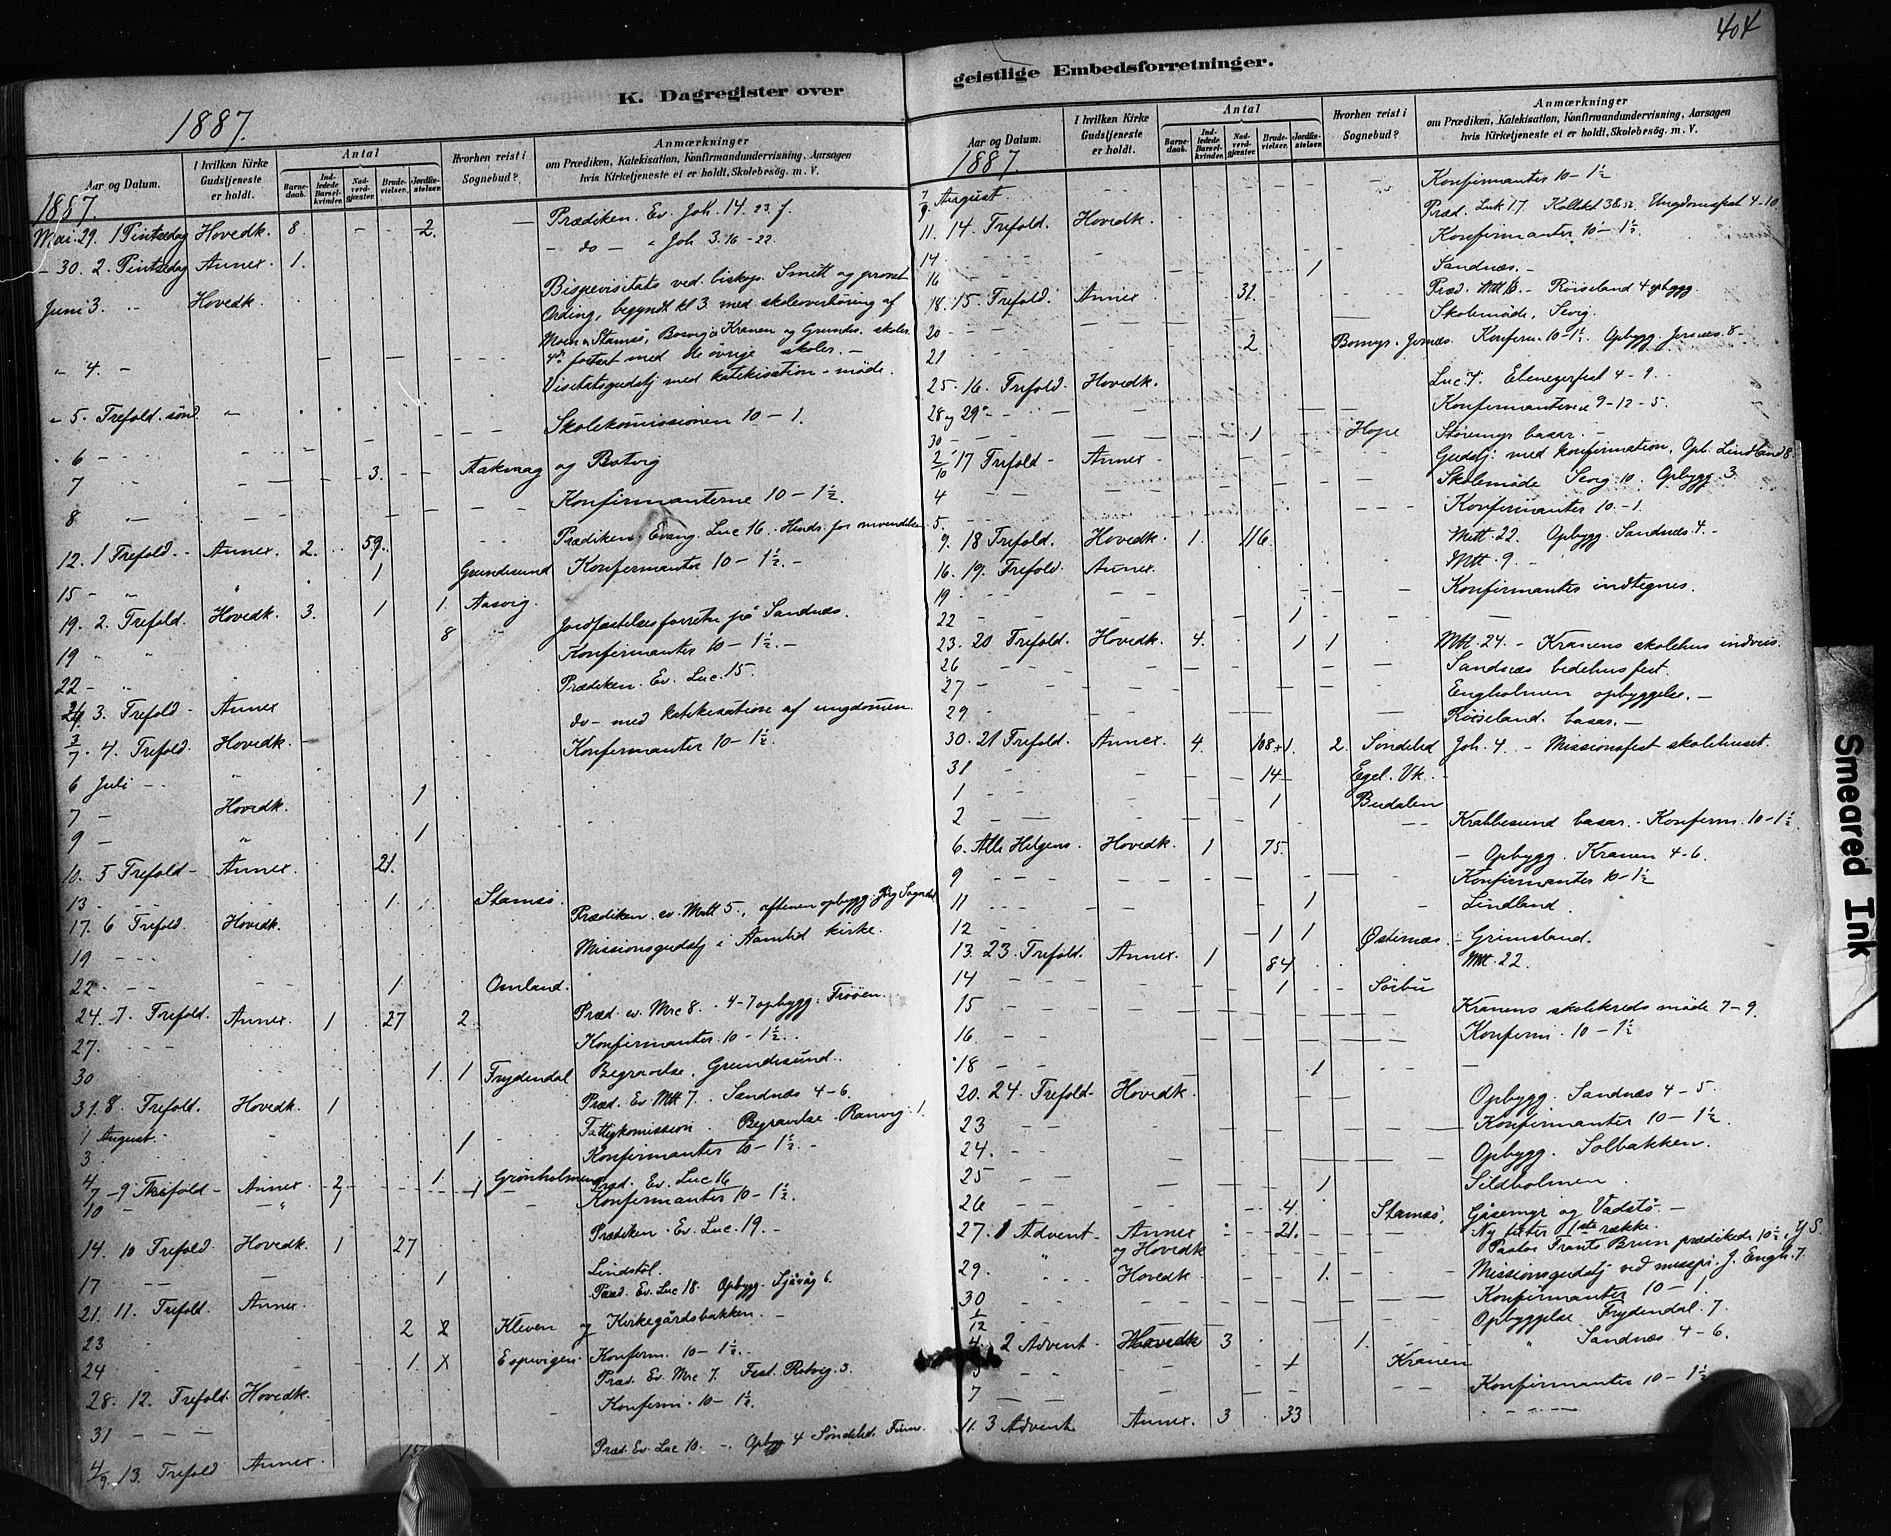 404
K. Dagregister over
geistlige Embedsforretninger.
1887.
Aar og Datum.
I hvilken Kirke Gudstjeneste er holdt.
Antal
Barnedaab.
Indledede Barselkvinder.
Nadverdgjæster.
Brudevielser.
Jordfæstelser.
Hvorhen reist i Sognebud?
Anmærkninger
om Prædiken, Katekisation, Konfirmandundervisning, Aarsagen
hvis Kirketjeneste ei er holdt, Skolebesög. m. V.
1887.
Mai 29. 1 Pintsedag Hovedk. 8 - - 2. - Prædiken. Ev. Joh. 14. 23. f.
- 30. 2. Pintsedag Annex. 1. - do - " Joh 3. 16-22.
Juni 3. Hovedk. Bispevisitats ved biskop Smitt og provst
Ording, begyndt kl 3. med skoleoverhöring af
Stamsö, Bosvig, Kranen og Grundes. skoler.
" 4. - 4de fortsat med de övrige skoler. -
Visitatsgudstj med katekisation - möde.
" 5. Trefold. sönd. "
" 6 - Skolekomissionen 10 - 1.
7 3. - - Aakvaag og Botvig
8 " - Konfirmanterne 10 - 1½.
12. 1 Trefold - Annex. 2. 59. Prædiken. Evang. Luc 16. Hindr. for omvendelse
15 - " " 1 Grundesund Konfirmanter 10 - 1½. -
19. 2. Trefold. Hovedk. 3. 1 1. Aasvig.
19 " 8 Jordfæstelsesforretn på Sandnæs.
22 - " Konfirmanter 10 - 1½. -
26. 3. Trefold - Annex Prædiken. Ev. Luc. 15.
3/7. 4. Trefold. Hovedk. - do - med katekisation af ungdommen.
6 Juli - Konfirmanter 10 - 1½.
7 - Hovedk. 1
9 - " 1
10. 5 Trefold - Annex. 21.
13 - 1. Stamsö.
17. 6 Trefold. Hovedk. Prædiken. ev. Matt 5., aftenen opbygg
19 - - - Missionsgudstj i Aamlid kirke.
22 - - - 1 Omland.
24. 7. Trefold. Annex. 1 27 2. Præd. ev. Mrc 8. . 4-7 opbygg: Trööen.
27. - - - Konfirmanter. 10 - 1½.
30 1. 1 Frydendal Begravelse. Grundesund.
31. 8 Trefold. Hovedk. 1 Præd. Ev Mtt 7. Sandnæs 4-6.
1 August. - Fattigkomission. Begravelse. Ranvig. 1.
3. 1 Konfirmanter 10 - 1½. -
4 1 Grönholmen
7 - 9 Trefold - Annex. 2 Præd. Ev. Luc 16
10 - Konfirmanter 10 - 1½.
14. 10 Trefold. Hovedk. 1 27 Prædiken. Ev. Luc. 19 -
17 - - 1 Lindstöl.
21. 11. Trefold. Annex. Præd. Ev. Luc 18. Opbygg. Sjåvåg 6.
23 2 2 Kleven og Kirkegårdsbakken. -
24 - 1. X Espevigen. Konfirm. 10 - 1½. -
28. 12. Trefold. Hovedk. Præd. Ev. Mrc 7. Fest. 3.
31 - - - Konfirm. 10 - 1½.
4/9. 13. Trefold Annex. Præd. Ev. Luc 10. -. Opbygg 4 Söndeled.
Aar og Datum.
I hvilken Kirke Gudstjeneste er holdt.
Antal
Barnedaab.
Indledede Barselkvinder.
Nadverdgjæster.
Brudevielser.
Jordfæstelser.
Hvorhen reist i Sognebud?
Anmærkninger
om Prædiken, Katekisation, Konfirmandundervisning, Aarsagen
hvis Kirketjeneste ei er holdt, Skolebesög. m. V.
1887.
7/9. August - Konfirmanter 10 - 1½
11. 14 Trefold. Hovedk. Præd. Luk 17. Kollekt 38.52. Ungdomsfest 4-10
14 - - Konfirmanter 10 - 1½
16 - - 1 Sandnæs. -
18. 15 Trefold. Annex 31. Præd. Mtt 6. - Röiseland 4 opbygg.
20 - Skolemöde, Sevig.
21 2 Bomyr. Jernæs. Konfirm. 10-1½. Opbygg. Jernæs. 8 -
25. 16. Trefold. Hovedk. Luc 7. Ebenezerfest 4 - 9.
28 og 29 - - Konfirmanterne 9-12-5.
30 - 1 Hope Störemyr basar. -
2/10 17 Trefold - Annex - Gudstj. med konfirmation. Opb. Lindland 8.
4 - - Skolemöde Sevig 10. Opbygg 3.
5. - Konfirmanter 10 - 1.
9. 18 Trefold. Hovedk. 1. 116. Mtt. 22. Opbygg. Sandnæs 4. -
16. 19. Trefold. Annex. Mtt. 9. -
19 - Konfirmanter indtegnes.
22 - 1 -
23. 20 Trefold. Hovedk. 4. 1 1 Mtt. 24. - Kranens skolehus indvies.
26 - Sandnæs bedehusfest.
27 - Engholmen opbyggelse. -
29 - Röiseland. basar. -
30. 21 Trefold. Annex. 4. 108+1. 2. Söndeled Joh. 4. - Missionsfest skolehuset.
31 - 14 - Egel. Vk. -
1 - 1 Budalen
2 - Krabbesund basar. - Konfirm. 10-1½
6. Alle Helgens. Hovedk. 1 75. - Opbygg. Kranen 4-6.
9 - Konfirmanter 10-1½
11 1 Lindland.
12 - 1 1 Östernæs. - Grimsland.
13. 23. Trefold. Annex. 1 84 Mtt. 22.
14 - 1 Sörbu
15 - Kranens skolekreds möde 7-9.
16 - Konfirm. 10 - 1½
18 - 1 -
20. 24 Trefold - Hovedk. - Opbygg. Sandnæs 4 - 5.
23 - Konfirmanter 10 - 1½.
24. - Opbygg. Solbakken.
25 - 1 Sildholmen.
26 - 4. Stamsö, Gåsemyr og Vadstö. -
27. 1 Advent - Annex 21. Ny texter 1ste række.
og Hovedk Pastor Frants Bruun prædikede 10½
29. " Hovedk. 1. Missionsgudstj ved misspr. J. Engh. 7.
30 - Konfirmanter 10 - 1.
1/12 - Opbyggelse Frydendal. 7.
4. 2 Advent. Hovedk 3 1. " Sandnæs 4-6.
Kranen
7 - Konfirmanter 10 - 1½
11. 3 Advent Annex. 3 33
Smeared Ink